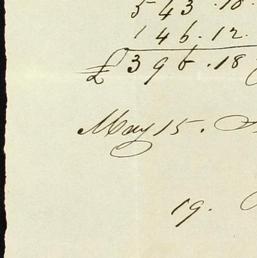 543 .10.
146.12.
£396.18
May 15.
19.